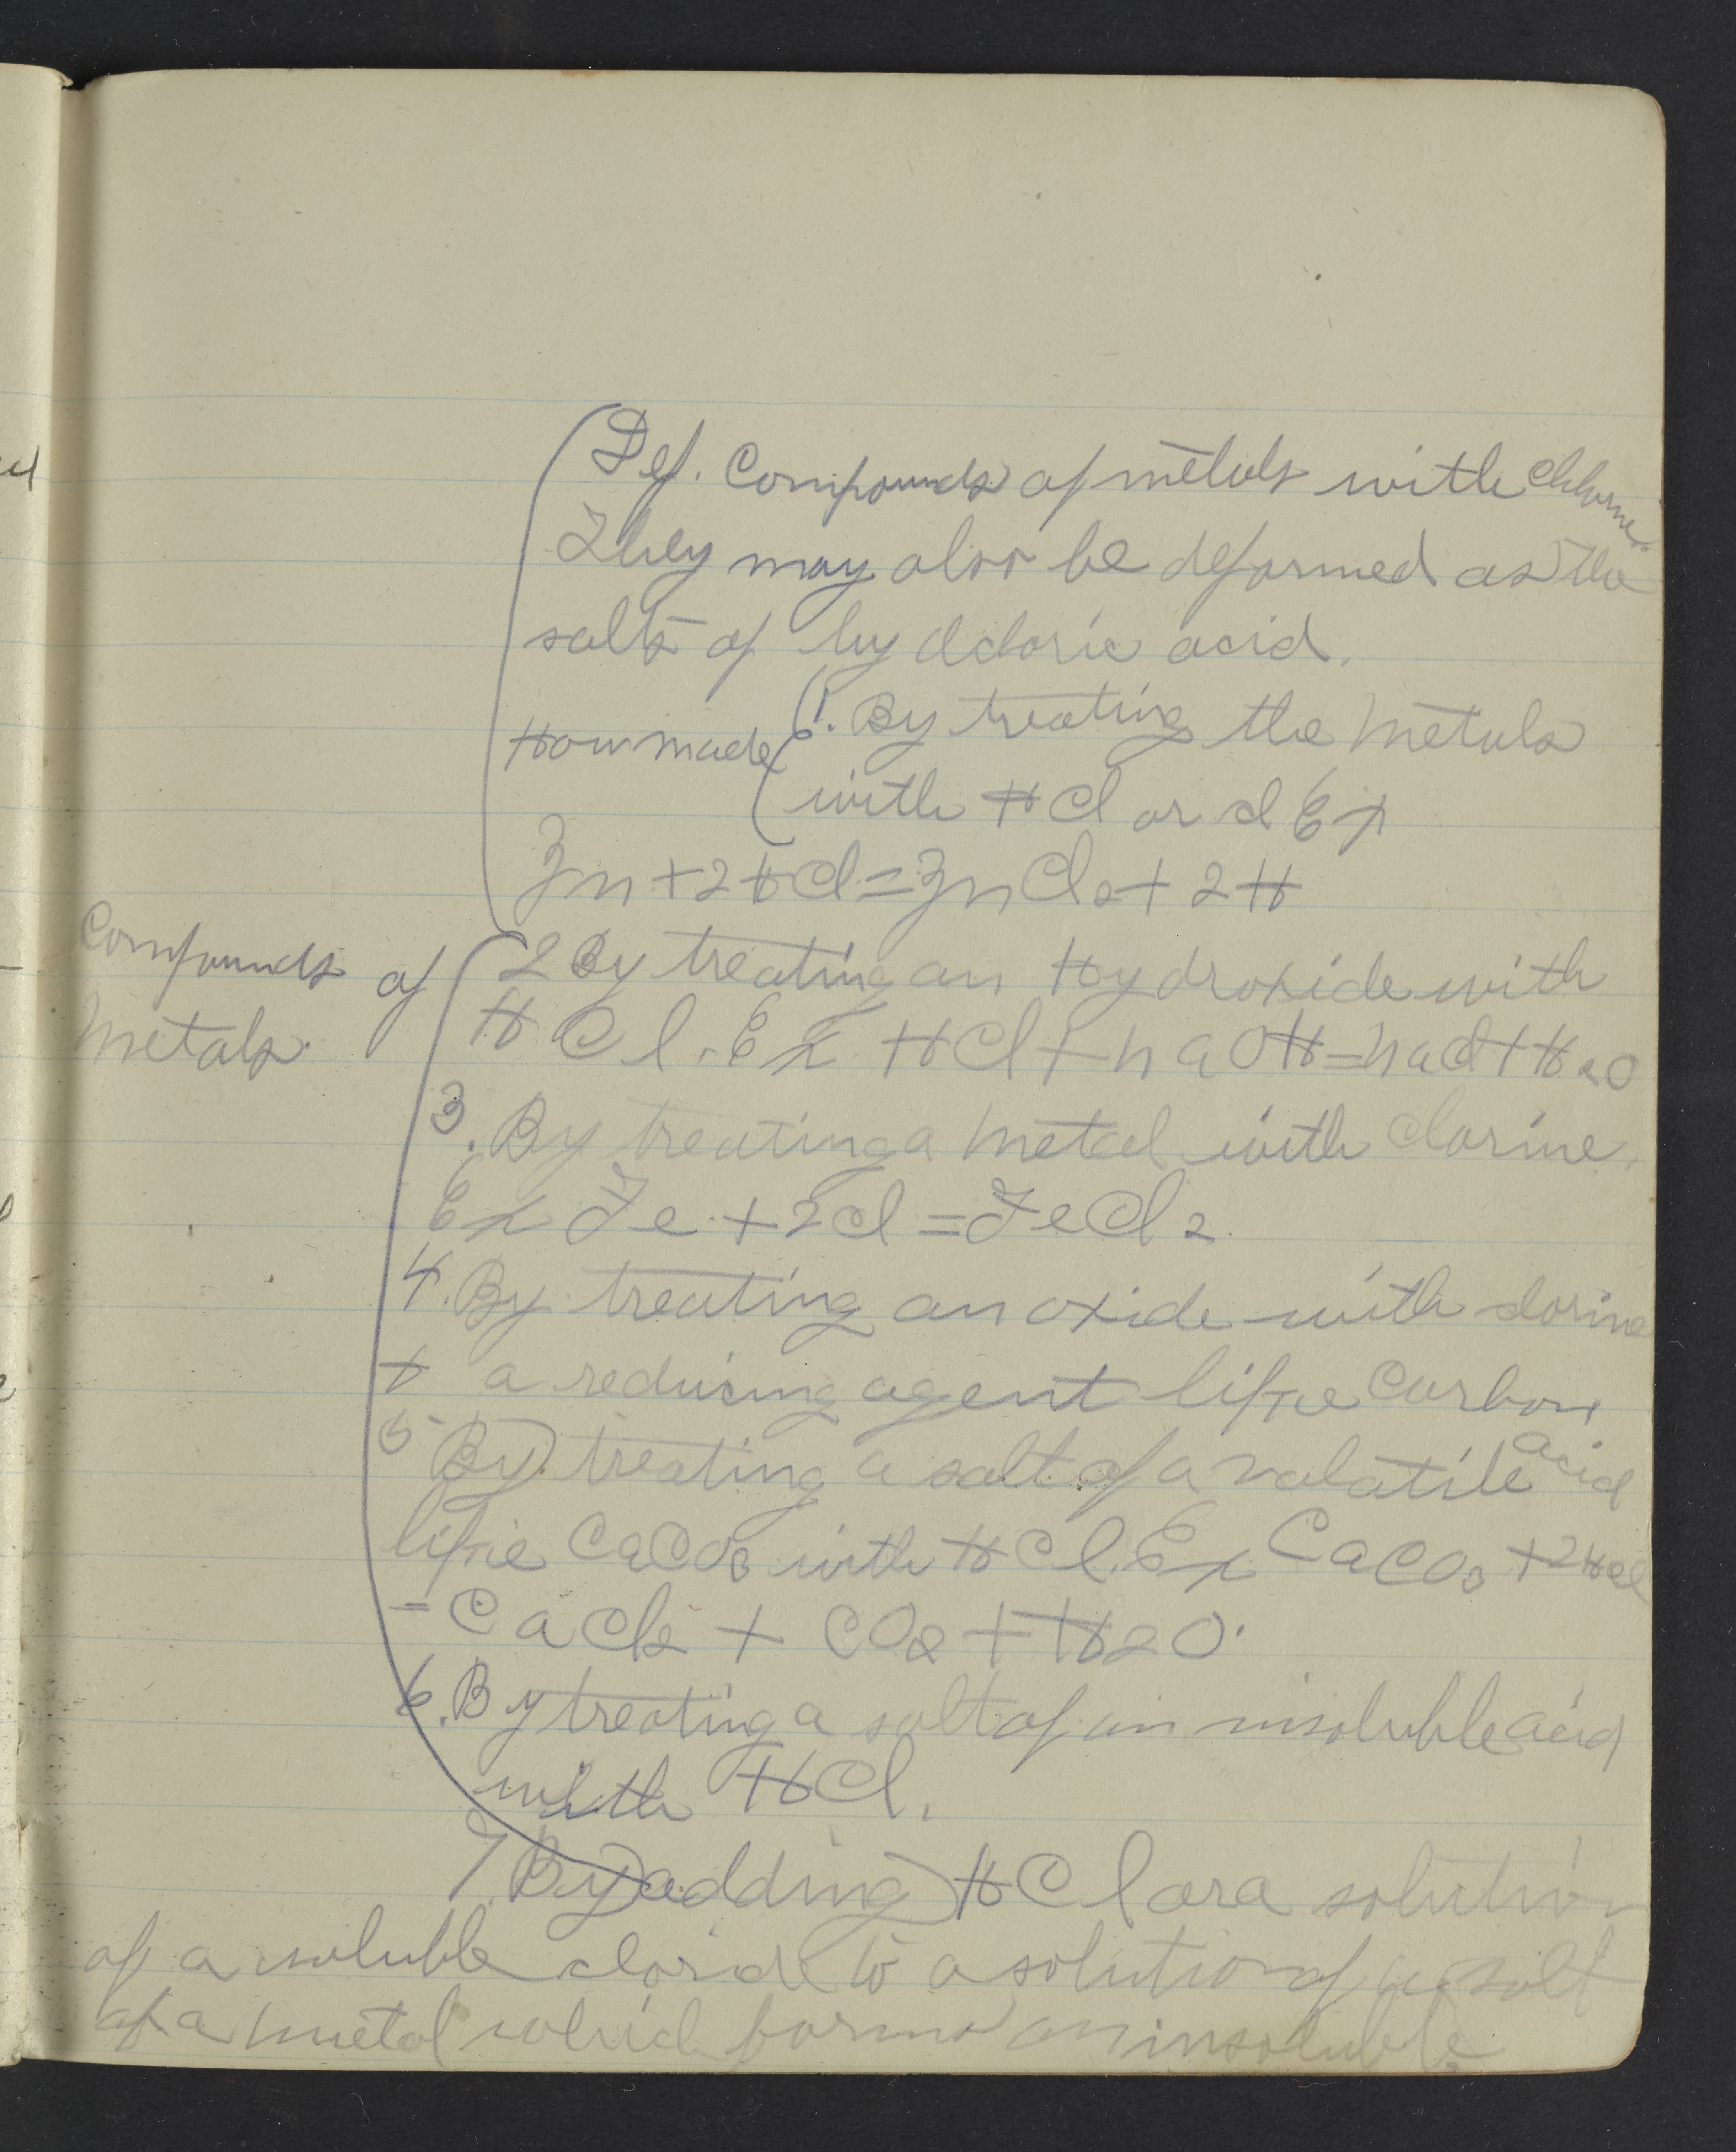 Def. Compounds of metals with Chlorine.
They may also be deformed as the
salts of hydcloric acid.
How made 1. By treating the Metals
with HCl or cl Ex
Zn + 2HCl = ZnCl2 + 2H
Compounds of
Metals.
2 By treating an Hydroxide with
HCl. Ex HCl + naOH = nacl + H2O
3. By treating a Metal with clorine.
Ex Fe + 2cl = FeCl2
4. By treating an oxide with clorine
+ a reducing agent like Carbon
5 By treating a salt of a volatile acid
like CaCO3 with HCl. Ex CaCO3 + 2HCl
= CaCl2 + CO2 + H2O.
6. By treating a salt of an insoluble acid
with HCl.
7. By adding HCl or a solution
of a soluble cloride to a solution of a salt
of a metal which forms an insoluble